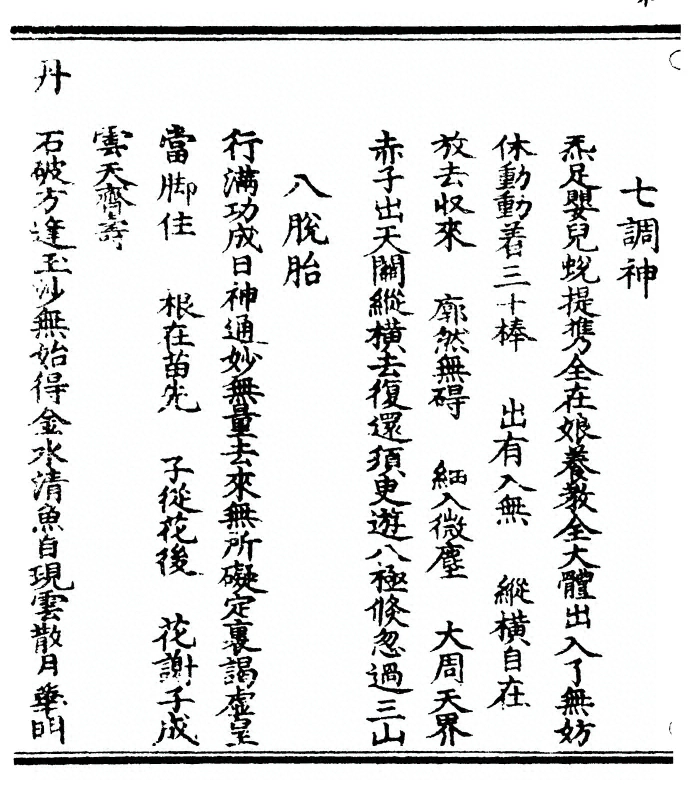 七調神
炁足嬰兒蛻提携全在娘養教全大體出入了無妨
休動動着三十棒　出有入無　縱橫自在
放去收來　廓然無碍　細入微塵　大周天界
赤子出天關縱橫去復還須更遊八極倏忽過三山
八脫胎
行滿功成日神通妙無量去來無所礙定裏謁虛皇
當脚住　根在苗先　子從花後　花謝子成
雲天齊壽
丹
石破方逢玉沙無始得金水清魚自現雲散月華明